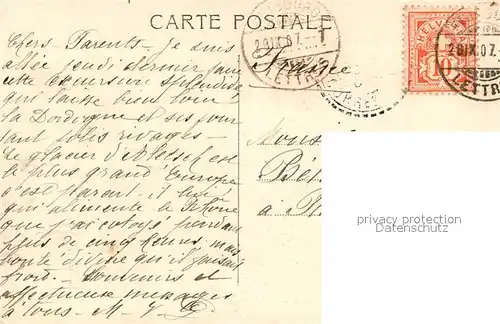 CARTE POSTALE
Chers Parents - Je suis
allée jeudi dernier faire
cette excursion splendide
qui laisse bien loin
la Dordogne et ses pour
tant jolis rivages -
Le glacier d'Aletsch est
le plus grand d'Europe
c'est parait-il lui
qui alimente le Rhône
que j'ai cotoyé pendant
plus de cinq heures, mais
bonté divine qu'il faisait
froid. - Souvenirs et
affectueux messages
à tous - M-
France
20.IX.07.
LETTRES
HELVETIA
10
20.IX.07.
LETTR
Mons
à
privacy protection
watermark